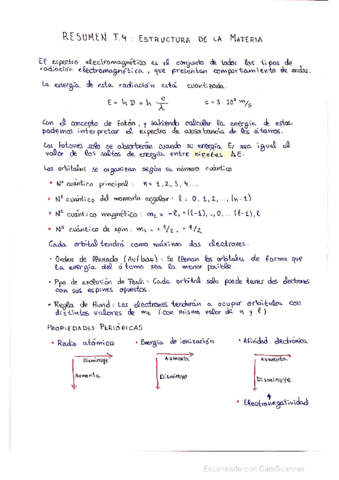 RESUMEN T.4: ESTRUCTURA DE LA MATERIA
El espectro electromagnético es el conjunto de todos los tipos de
radiación electromagnética, que presentan comportamiento de ondas.
La energía de esta radiación está cuantizada.
E = h ν = h c/λ    c = 3·10⁸ m/s
Con el concepto de Fotón, y sabiendo calcular la energía de estos
podemos interpretar el espectro de absorbancia de los átomos.
Los fotones solo se absorberán cuando su energía E sea igual al
valor de los saltos de energía entre niveles ΔE.
Los orbitales se organizan según su número cuántico
• Nº cuántico principal: n = 1, 2, 3, 4...
• Nº cuántico del momento angular: ℓ = 0, 1, 2, ..., (n-1)
• Nº cuántico magnético: mℓ = -ℓ, -(ℓ-1), .., 0, ... (ℓ-1), ℓ
• Nº cuántico de spin: ms = +1/2, -1/2
Cada orbital tendrá como máximo dos electrones.
• Orden de llenado (Aufbau): Se llenan los orbitales de forma que
la energía del átomo sea la menor posible
• Ppo de exclusión de Pauli: Cada orbital solo puede tener dos electrones
con sus espines opuestos.
• Regla de Hund: Los electrones tenderán a ocupar orbitales con
distintos valores de mℓ (con mismo valor de n y ℓ)
PROPIEDADES PERIÓDICAS
• Radio atómico • Energía de ionización • Afinidad electrónica
Disminuye Aumenta Aumenta
Aumenta Disminuye Disminuye
• Electronegatividad
Escaneado con CamScanner